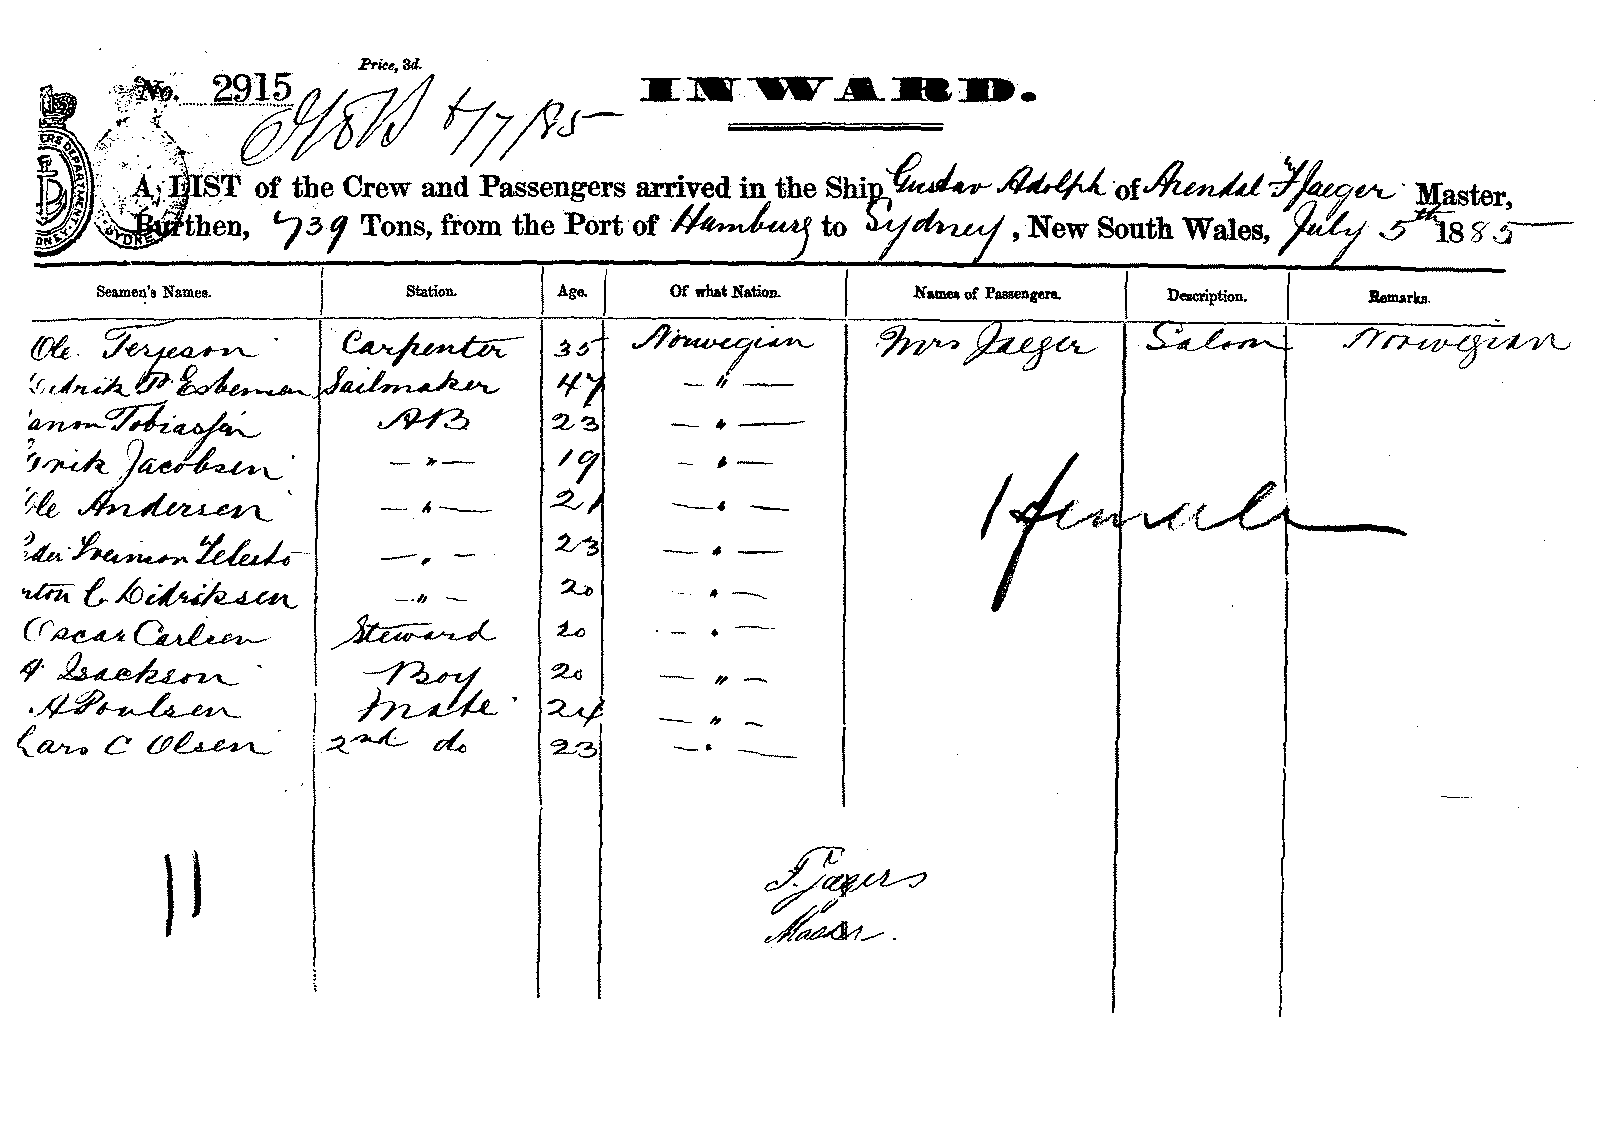 Price, 3d.
No. 2915
INWARD.
6/7/85
A LIST of the Crew and Passengers arrived in the Ship Gustav Adolph of Arendal F Jaeger Master,
Burthen, 739 Tons, from the Port of Hamburg to Sydney, New South Wales, July 5th 1885
Seamen's Names. Station. Age. Of what Nation. Names of Passengers. Description. Remarks.
Ole Terjeson Carpenter 35 Norwegian Mrs Jaeger Saloon Norwegian
edrik P Esbensen Sailmaker 47 — " —
anon Tobiassen AB 23 — " —
Erik Jacobsen — " — 19 — " —
Ole Andersen — " — 21 — " —
— " — 23 — " —
rton C Didriksen — " — 20 — " —
Oscar Carlsen Steward 20 — " —
A Isackson Boy 20 — " —
A Poulsen Mate 24 — " —
Lars C Olsen 2nd do 23 — " —
1 female
11
F. Jaeger
Master.